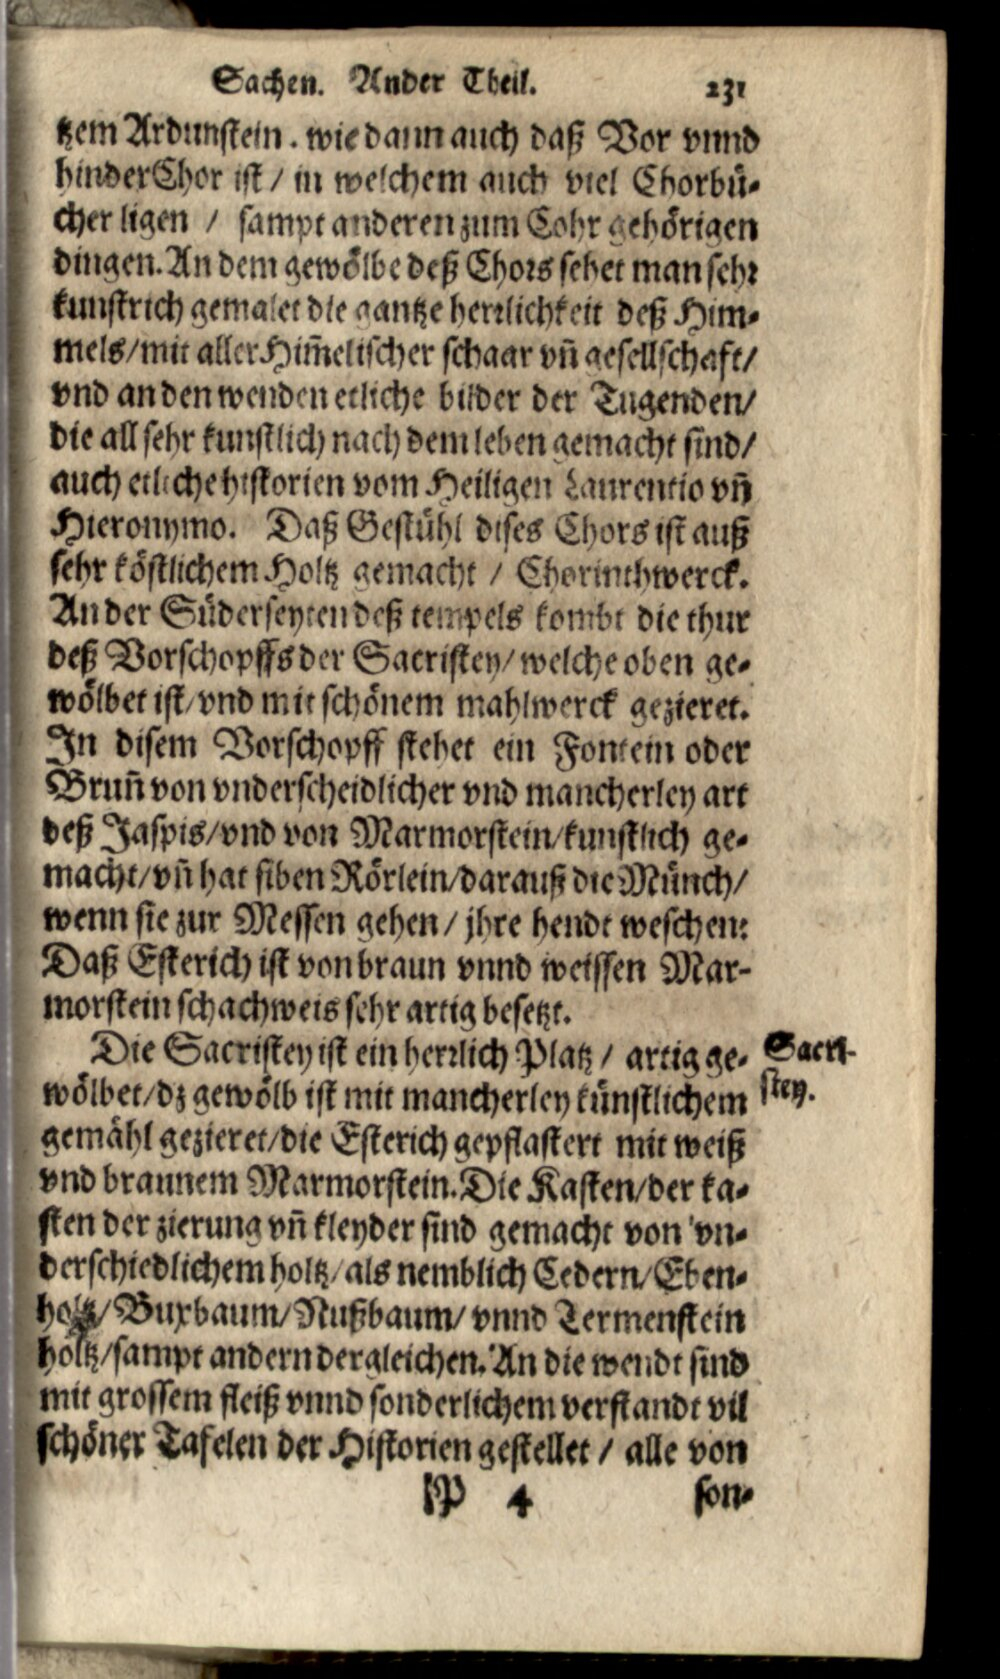 Sachen. Ander Theil. 231
tzem Ardunstein. wie dann auch daß Vor vnnd
hinder Chor ist / in welchem auch viel Chorbü-
cher ligen / sampt anderen zum Cohr gehörigen
dingen. An dem gewölbe deß Chors sehet man sehr
kunstrich gemalet die gantze herrlichkeit deß Him-
mels/mit aller Him̃elischer schaar vn̄ gesellschaft/
vnd an den wenden etliche bilder der Tugenden/
die all sehr kunstlich nach dem leben gemacht sind/
auch etliche historien vom Heiligen Laurentio vn̄
Hieronymo. Daß Gestühl dises Chors ist auß
sehr köstlichem Holtz gemacht / Chorinthwerck.
An der Süderseyten deß tempels kombt die thur
deß Vorschopffs der Sacristey/welche oben ge-
wölbet ist/vnd mit schönem mahlwerck gezieret.
In disem Vorschopff stehet ein Fontein oder
Brun̄ von vnderscheidlicher vnd mancherley art
deß Jaspis/vnd von Marmorstein/kunstlich ge-
macht/vn̄ hat siben Rörlein/darauß die Münch/
wenn sie zur Messen gehen / jhre hendt weschen:
Daß Esterich ist von braun vnnd weissen Mar-
morstein schachweis sehr artig besetzt.
Die Sacristey ist ein herrlich Platz / artig ge-
Sacri-
stey.
wölbet/dz gewölb ist mit mancherley künstlichem
gemähl gezieret/die Esterich gepflastert mit weiß
vnd braunem Marmorstein. Die Kasten/der ka-
sten der zierung vn̄ kleyder sind gemacht von vn-
derschiedlichem holtz/als nemblich Cedern/Eben-
holtz/Buxbaum/Nußbaum/vnnd Termenstein
holtz/sampt andern dergleichen. An die wendt sind
mit grossem fleiß vnnd sonderlichem verstandt vil
schöner Tafelen der Historien gestellet / alle von
P 4 son-